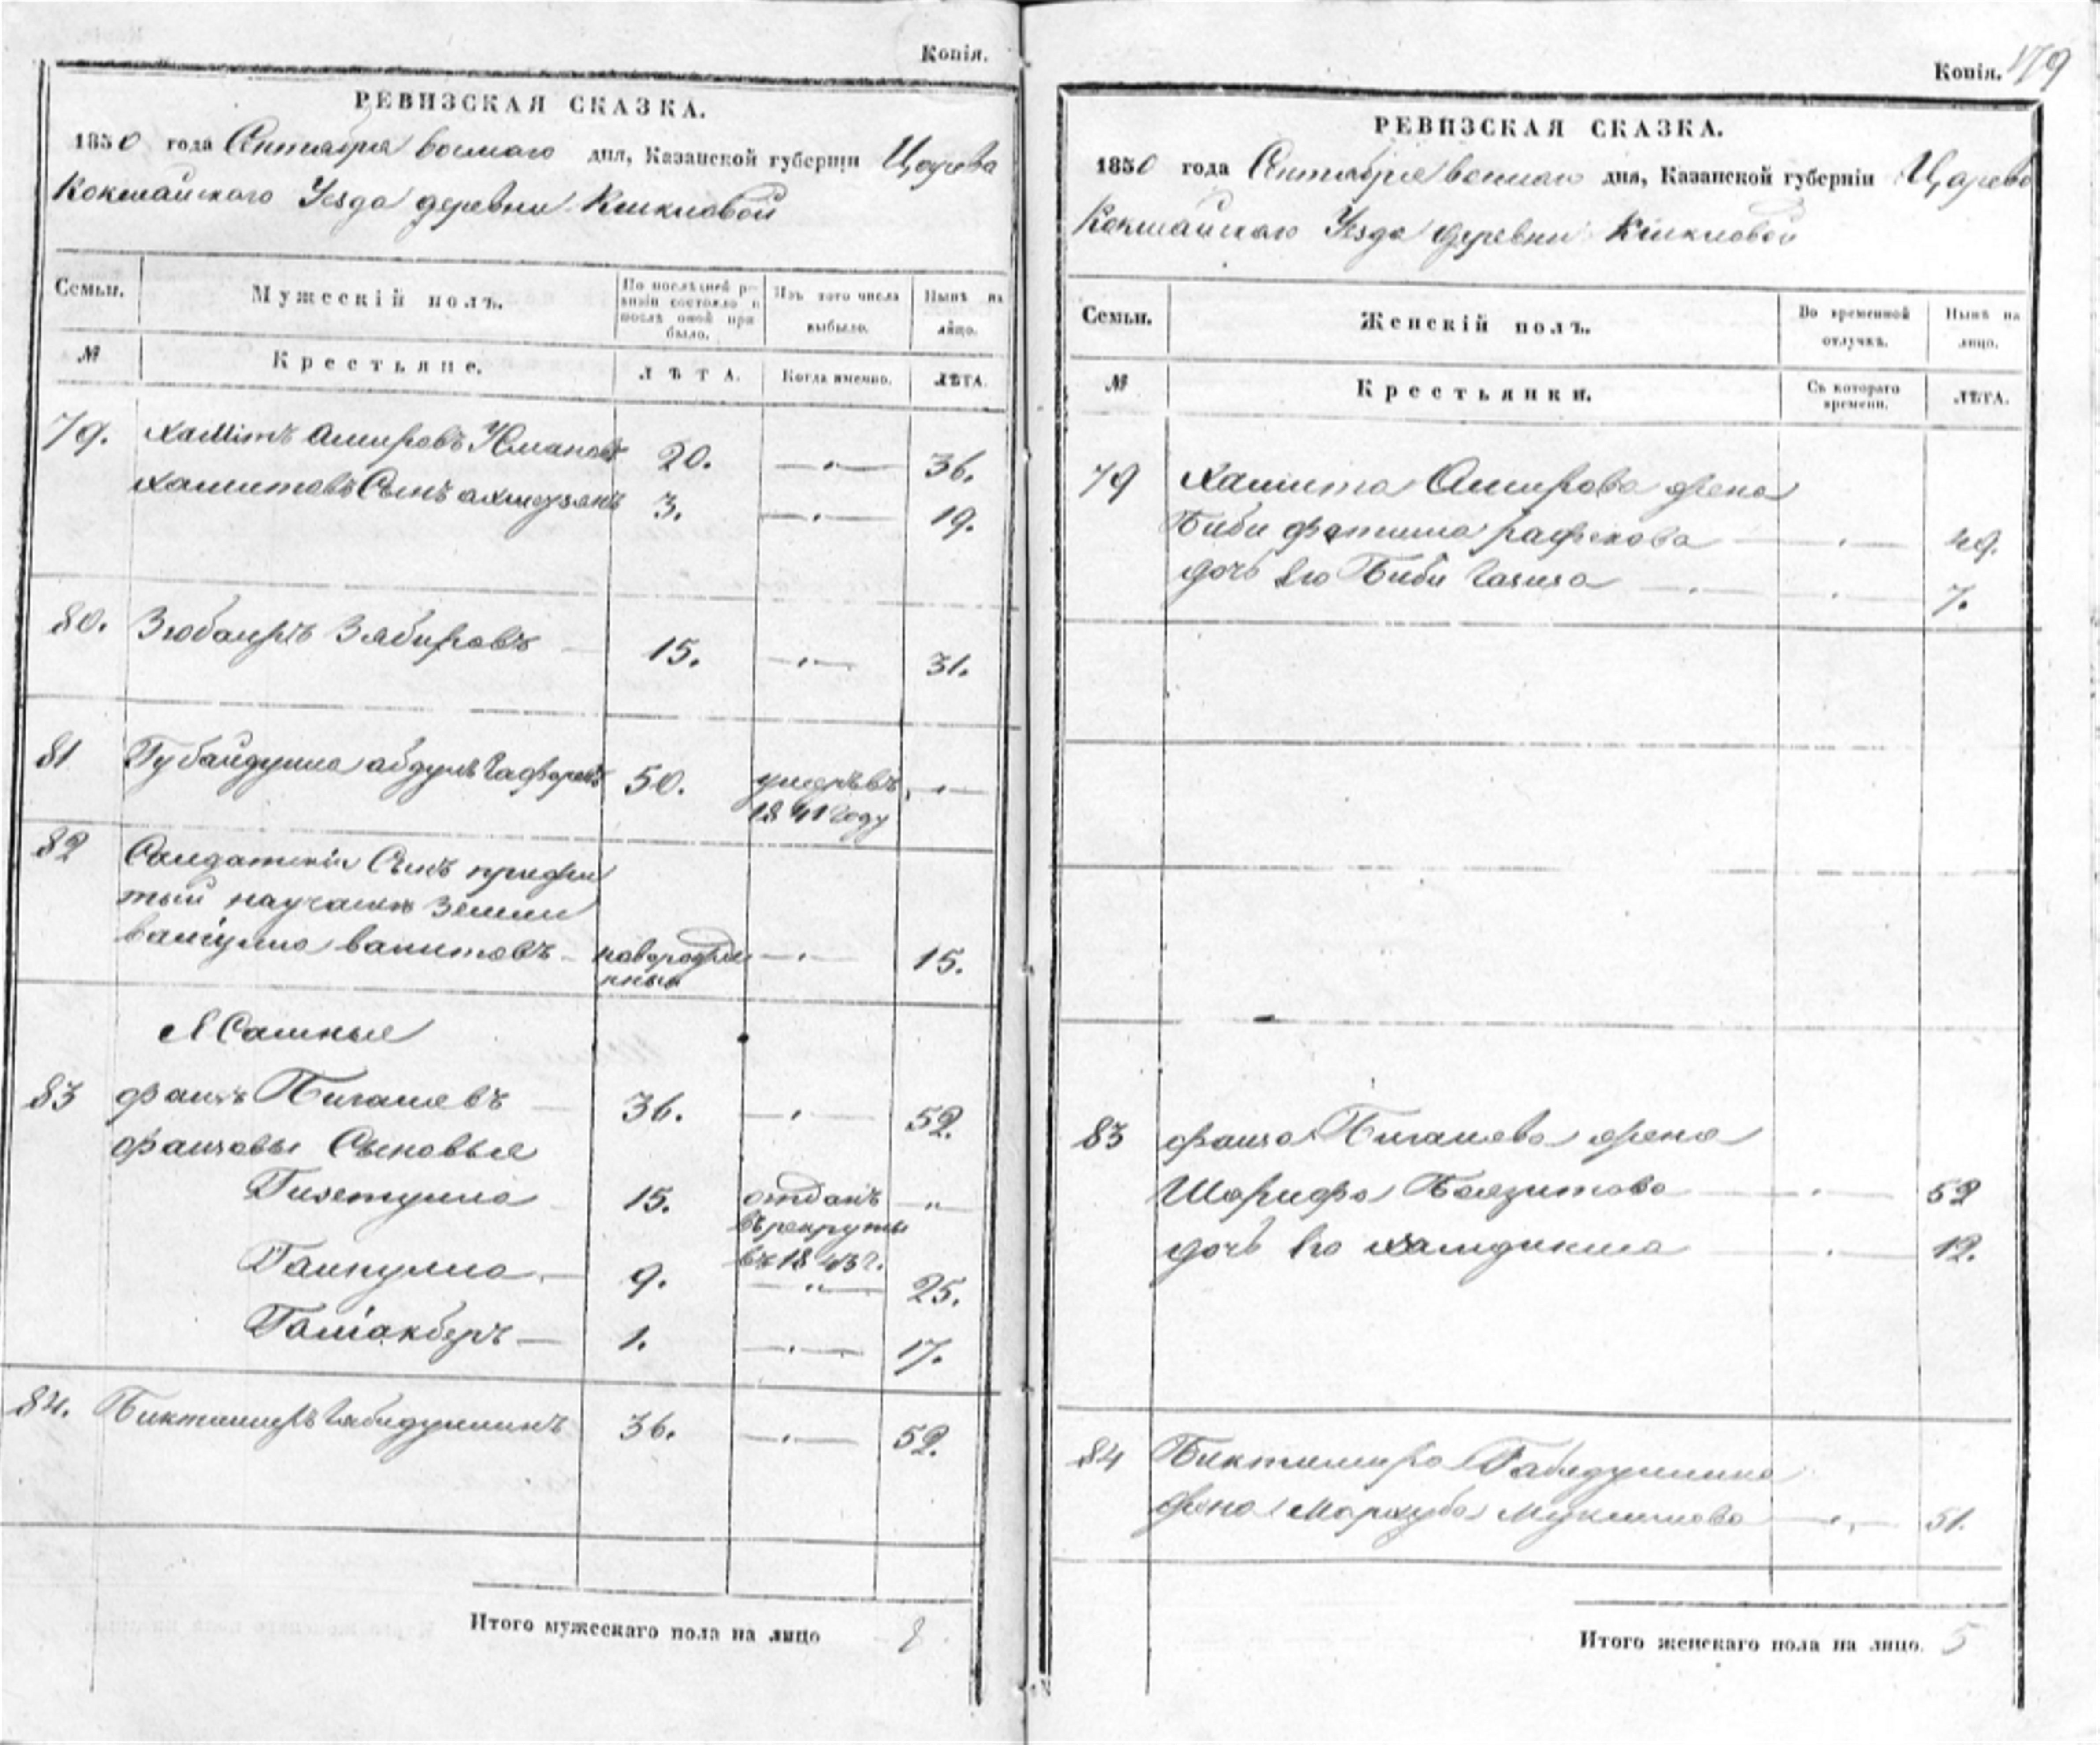 Копія.
РЕВИЗСКАЯ СКАЗКА.
1850 года Сентября восмаго дня, Казанской губерніи Царево
Кокшайскаго Уезда деревни
Семьи.
Мужескій полъ.
По послѣдней ревизіи состояло и послѣ оной прибыло.
Изъ того числа выбыло.
Нынѣ на лицо.
№
Крестьяне.
ЛѢТА.
Когда именно.
ЛѢТА.
79. Хамитъ Амировъ 20. 36.
Хамитовъ Сынъ ахмезянъ 3. 19.
80. Зюбаиръ Зябировъ 15. 31.
81 Губайдулла абдулъ Гафаровъ 50. умеръ въ
1841 году
82 Салдатскій Сынъ
земли
валиулла вапитовъ новорожде 15.
нный
Ясашные
83 фаизъ Бигашевъ 36. 52.
фаизовы Сыновья
Гизетулла 15. отданъ
въ рекруты
въ 1843 г.
Гайнулла 9. 25.
Галіакберъ 1. 17.
84. Биктимеръ Габидуллинъ 36. 52.
Итого мужескаго пола на лицо 8
Копія. 179
РЕВИЗСКАЯ СКАЗКА.
1850 года Сентября восмаго дня, Казанской губерніи Царево
Кокшайскаго Уезда деревни
Семьи.
Женскій полъ.
Во временной отлучкѣ.
Нынѣ на лицо.
№
Крестьянки.
Съ котораго времени.
ЛѢТА.
79 Хамита Амирова жена
Биби фатима рафекова 49.
дочь Его Биби Газиза 7.
83 фаиза Бигашева жена
Шарифа Баязитова 52
дочь Его 12.
84 Биктимира Габидуллина
жена Мархуба Муксинова 51.
Итого женскаго пола на лицо. 5